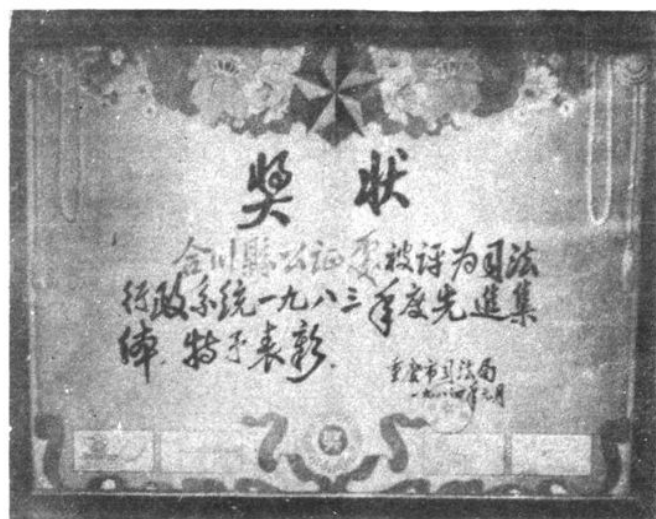 奖状
合川縣公证處被评为司法
行政系统一九八三年度先進集
体.特予表彰.
重庆市司法局
一九八四年元月